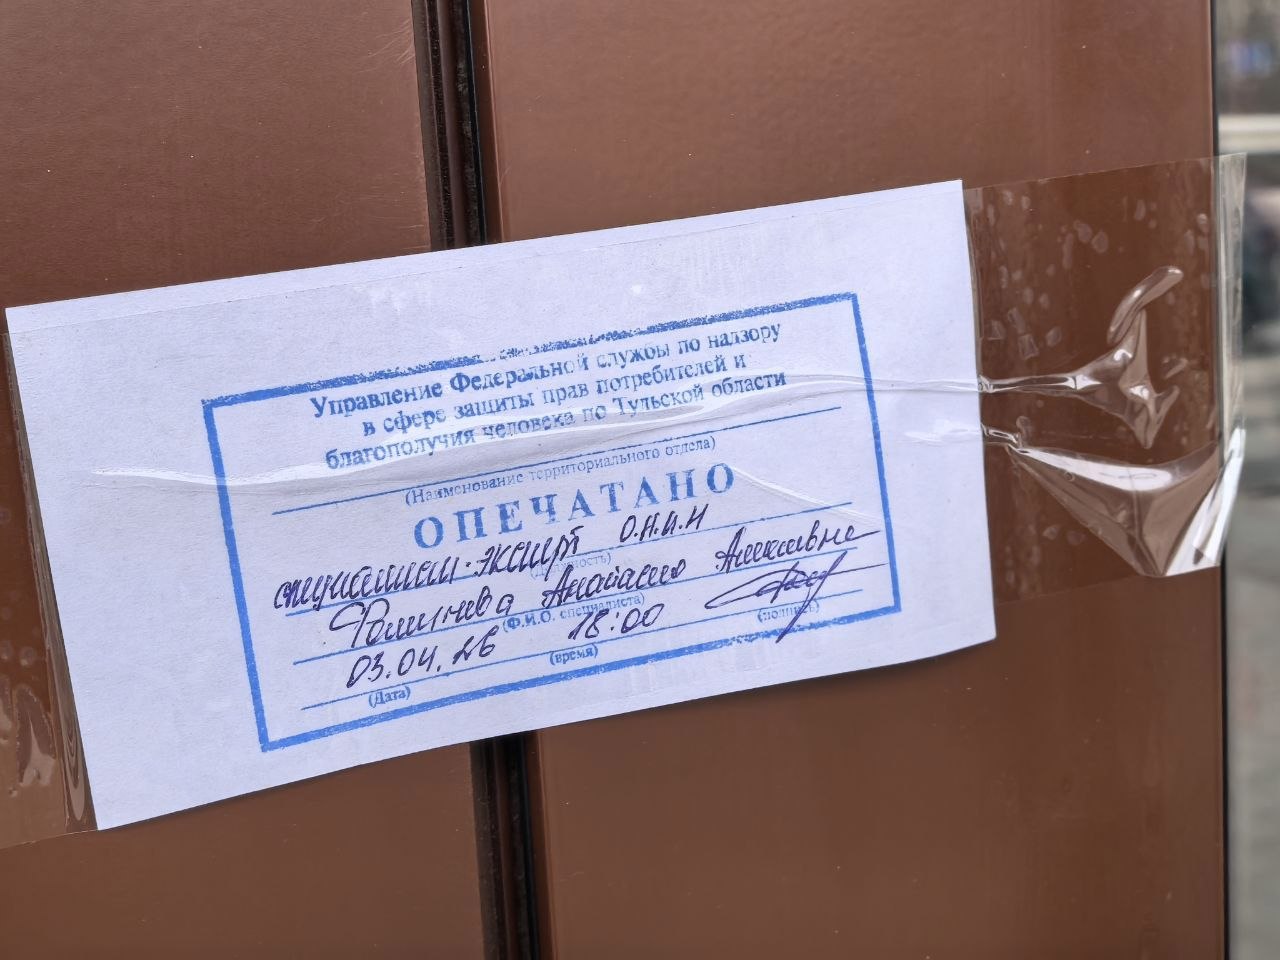 Управление Федеральной службы по надзору
в сфере защиты прав потребителей и
благополучия человека по Тульской области
(Наименование территориального отдела)
ОПЕЧАТАНО
специалист-эксперт О.Н.И.Н
(Должность)
Анастасия Алексеевна
(Ф.И.О. специалиста)
03.04.26 18:00
(Дата) (время) (подпись)